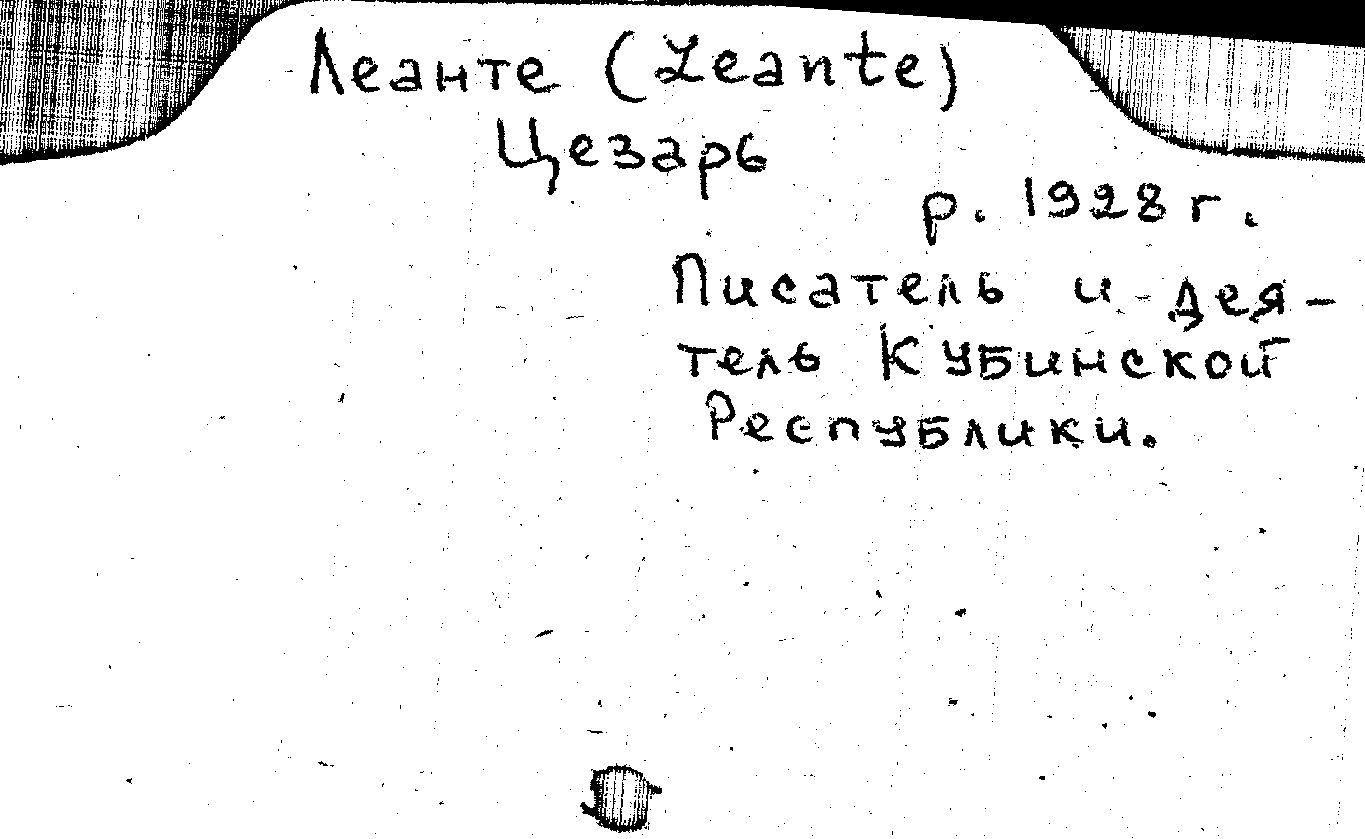 Леанте (Leante)
Цезарь
р. 1928 г.
Писатель и дея-
тель Кубинской
Республики.